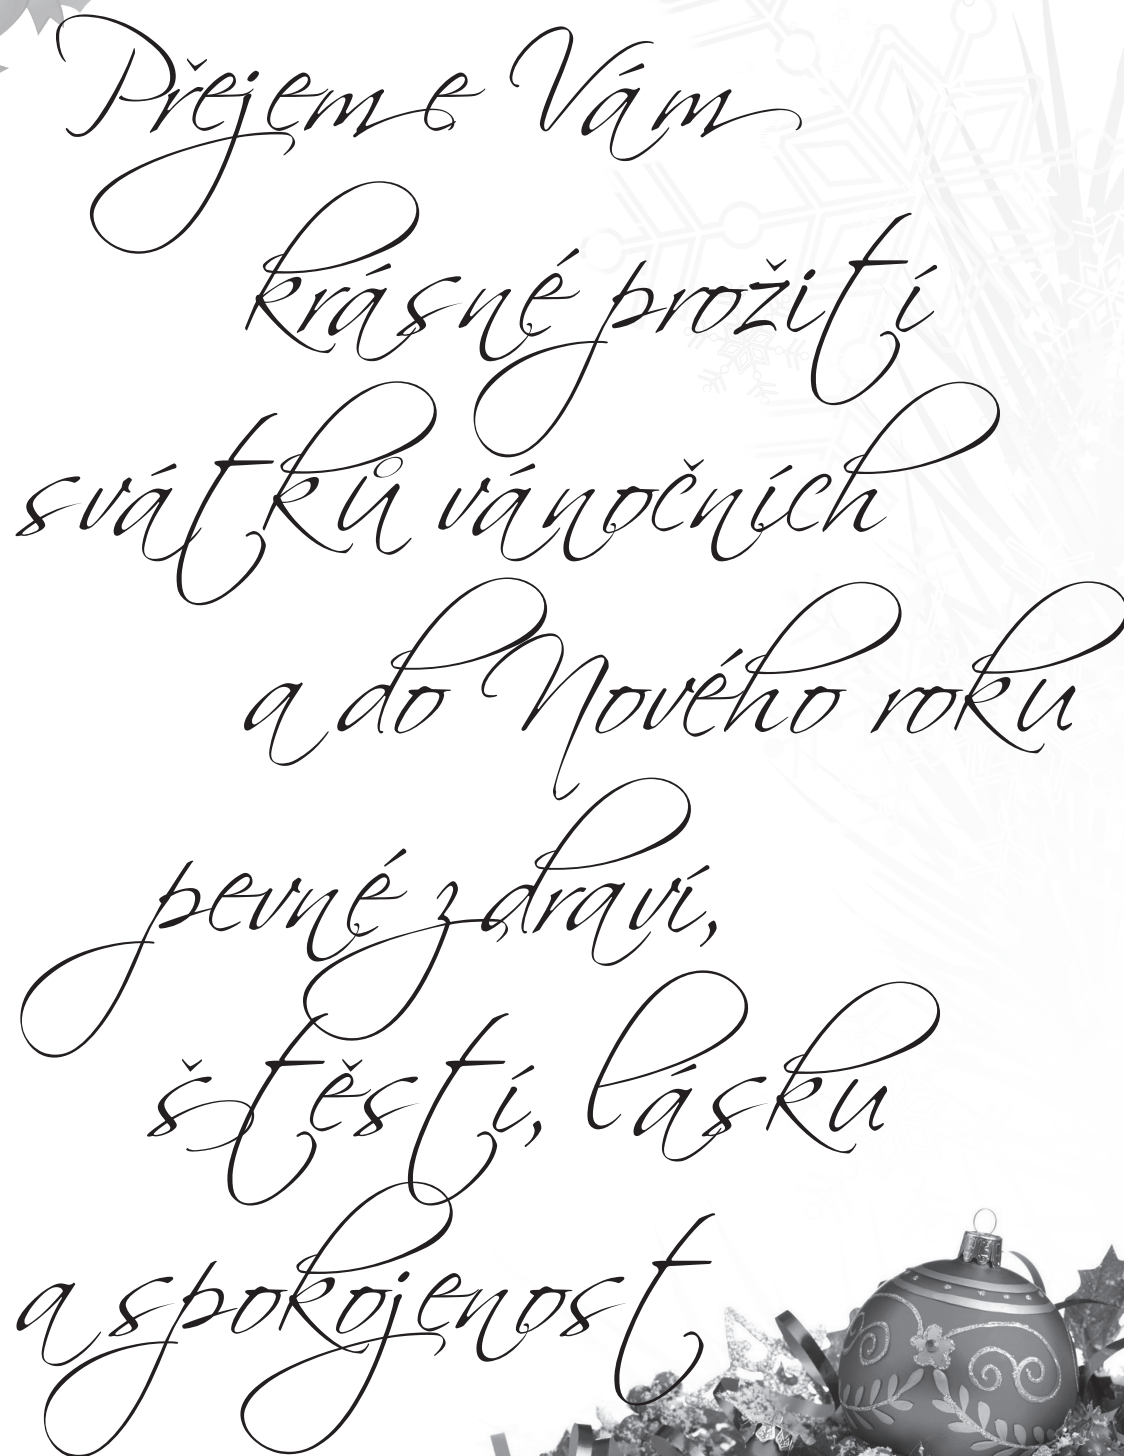 Přejeme Vám
krásné prožití
svátků vánočních
a do Nového roku
pevné zdraví,
štěstí, lásku
a spokojenost